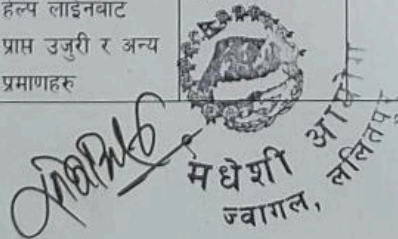 हेल्प लाईनबाट
प्राप्त उजुरी र अन्य
प्रमाणहरु
मधेशी आयोग
ज्वागल, ललितपुर